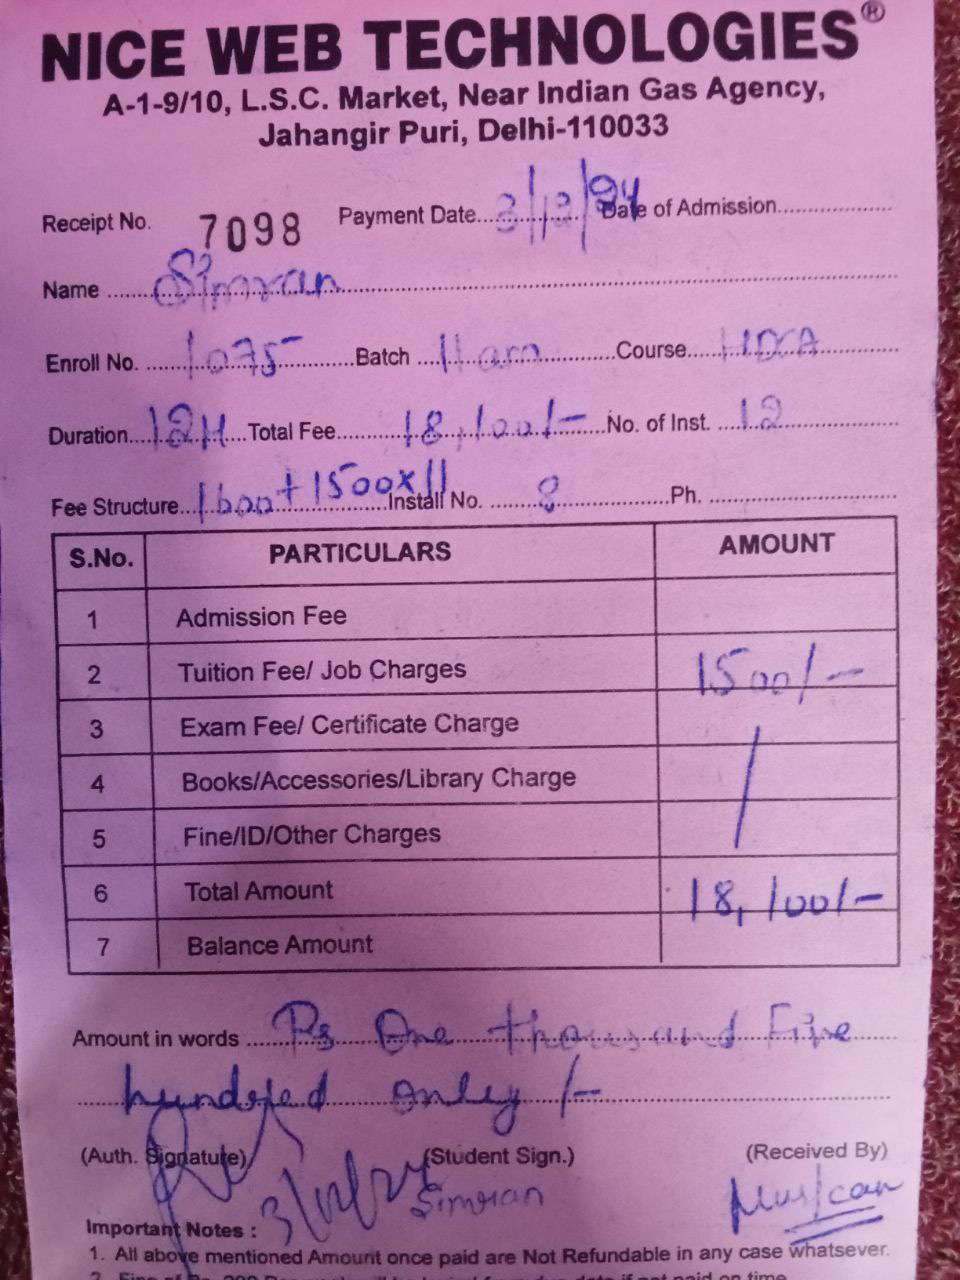 NICE WEB TECHNOLOGIES®
A-1-9/10, L.S.C. Market, Near Indian Gas Agency,
Jahangir Puri, Delhi-110033
Receipt No. 7098 Payment Date 3/12/24 Date of Admission
Name Simran
Enroll No. 1075 Batch 11 am Course HDCA
Duration 12M Total Fee 18,100/- No. of Inst. 12
Fee Structure 1600+1500x11 Install No. 8 Ph.
S.No. PARTICULARS AMOUNT
1 Admission Fee
2 Tuition Fee/ Job Charges 1500/-
3 Exam Fee/ Certificate Charge
4 Books/Accessories/Library Charge
5 Fine/ID/Other Charges
6 Total Amount 18,100/-
7 Balance Amount
Amount in words Rs One thousand Five
hundred only /-
(Auth. Signature) (Student Sign.) (Received By)
3/12/24 Simran Muskan
Important Notes :
1. All above mentioned Amount once paid are Not Refundable in any case whatsever.